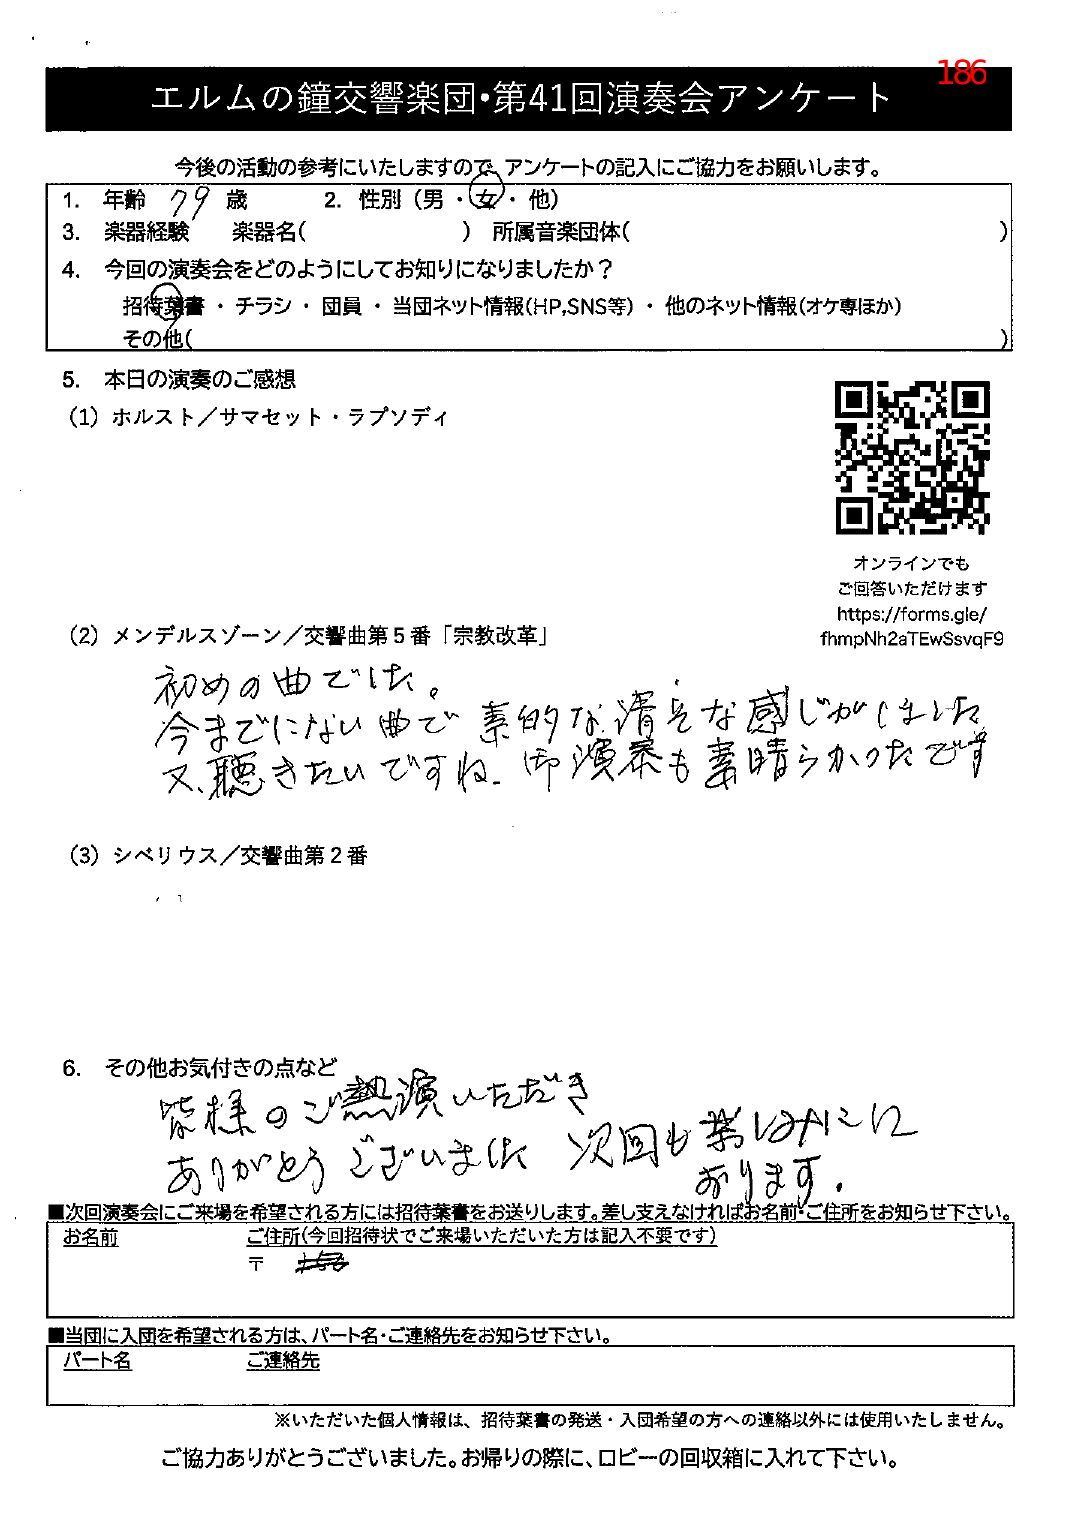 186
エルムの鐘交響楽団・第41回演奏会アンケート
今後の活動の参考にいたしますので、アンケートの記入にご協力をお願いします。
1. 年齢 79 歳 2. 性別（男・女・他）
3. 楽器経験 楽器名( ) 所属音楽団体( )
4. 今回の演奏会をどのようにしてお知りになりましたか？
招待葉書 ・ チラシ ・ 団員 ・ 当団ネット情報(HP,SNS等) ・ 他のネット情報(オケ専ほか)
その他( )
5. 本日の演奏のご感想
（1）ホルスト／サマセット・ラプソディ
オンラインでも
ご回答いただけます
https://forms.gle/
fhmpNh2aTEwSsvqF9
（2）メンデルスゾーン／交響曲第５番「宗教改革」
初めの曲でした。
今までにない曲で 素的な清そな感じがしました
又、聴きたいですね、御演奏も素晴らかったです
（3）シベリウス／交響曲第２番
6. その他お気付きの点など
皆様のご熱演いただき
ありがとうございました 次回も楽しみに
おります．
■次回演奏会にご来場を希望される方には招待葉書をお送りします。差し支えなければお名前・ご住所をお知らせ下さい。
お名前 ご住所(今回招待状でご来場いただいた方は記入不要です)
〒
■当団に入団を希望される方は、パート名・ご連絡先をお知らせ下さい。
パート名 ご連絡先
※いただいた個人情報は、招待葉書の発送・入団希望の方への連絡以外には使用いたしません。
ご協力ありがとうございました。お帰りの際に、ロビーの回収箱に入れて下さい。